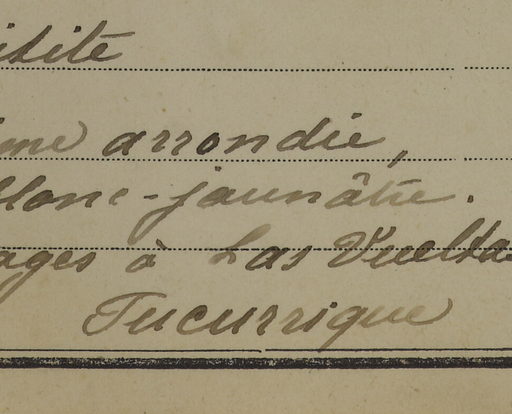 isité
ime arrondie,
blanc-jaunâtre.
ages à Las Vueltas
Tucurrique